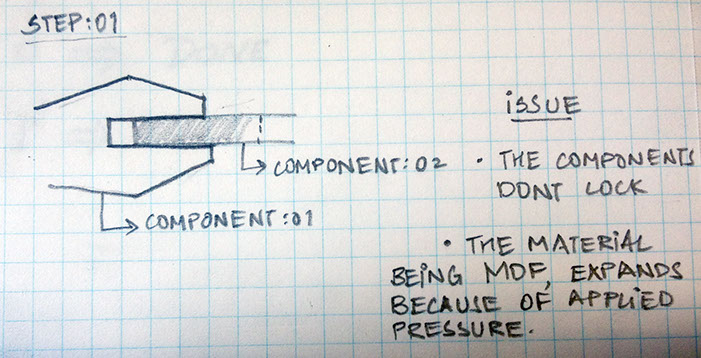 STEP:01
ISSUE
COMPONENT:02
• THE COMPONENTS
DONT LOCK
COMPONENT:01
• THE MATERIAL
BEING MDF, EXPANDS
BECAUSE OF APPLIED
PRESSURE.